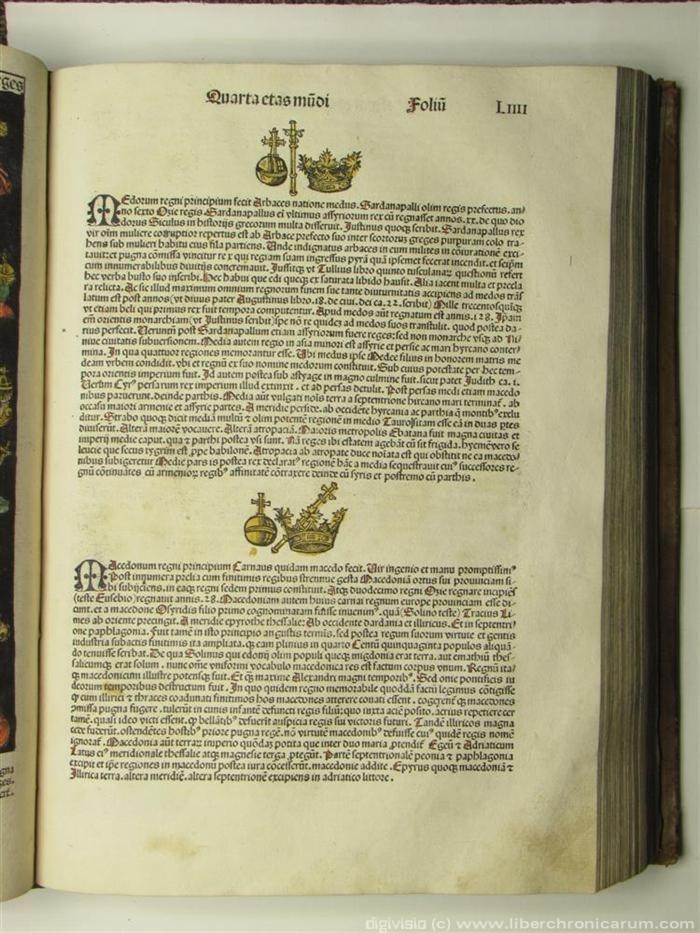 rges
Quarta etas mũdi Foliũ LIIII
MEdorum regni principium fecit Arbaces natione medus. Sardanapalli olim regis prefectus. an/
no sexto Ozie regis. Sardanapallus eĩ vltimus assyriorum rex cũ regnasset annos. xx. de quo dio
dorus Siculus in historijs grecorum multa disseruit. Justinus quoq; scribit. Sardanapallus rex
vir oĩm muliere corruptior repertus est ab Arbace prefecto suo inter scortorum greges purpuram colo tra/
hens sub mulieri habitu eius fila partiens. Unde indignatus arbaces in eum milites in coiurationẽ exci/
tauit: et pugna cõmissa vincitur rex qui regiam suam ingressus pyrã quã ipsemet fecerat incendit. et seipm̃
cum innumerabilibus diuitijs concremauit. Jussitq; vt Tullius libro quinto tusculanaꝝ questionũ refert
hec verba busto suo inscribi. Hec habui que edi queq; ex saturata libido hausit. Alia iacent multa et precla
ra relicta. Ac sic illud maximum omnium regnorum finem sue tante diuturnitatis accipiens ad medos trãs
latum est post annos (vt diuus pater Augustinus libro. 18. de ciui. dei ca. 22. scribit) Mille trecentosquinq;
vt etiam beli qui primus rex fuit tempora computentur. Apud medos aũt regnatum est annis. 128. Ipam
em̃ orientis monarchiam (vt Justinus scribit) spe nõ re quidez ad medos suos transtulit. quod postea da/
rius persecit. Verumm̃ post Sardanapallum etiam assyriorum fuere reges: sed non monarche vsq; ad Ni
niue ciuitatis subuersionem. Media autem regio in asia minori est assyrie et persie ac mari hyrcano conter/
mina. In qua quattuor regiones memorantur esse. Ubi medus ipse Medee filius in honorem matris me
deam vrbem condidit. vbi et regnũ ex suo nomine medorum constituit. Sub cuius potestate per hec tem/
pora orientis imperium fuit. Id autem postea sub astyage in magno culmine fuit. sicut patet Judith ca. 1.
Verum Cyrꝰ persarum rex imperium illud extinxit. et ad persas detulit. Post persas medi etiam macedo
nibus paruerunt. deinde parthis. Media aũt vulgari nois terra a septentrione hircano mari terminaꝶ. ab
occasu maiori armenie et assyrie partes. A meridie perside. ab occidente hyrcania ac parthia q̃ montibꝰ exclu
ditur. Strabo quoq; dicit mediã multũ & olim potentẽ regionẽ in medio Taurositam esse eã in duas ptes
diuiserũt. Alterã maiorẽ vocauere. Alterã atropaciã. Maioris metropolis Ebatana fuit magna ciuitas et
imperij medie caput. qua & parthi postea vsi sunt. Nã reges ibi estatem agebãt cũ sit frigida. hyemẽ vero se
leucie que secus tygrim est ꝓpe babilonẽ. Atropacia ab atropate duce noiata est qui obstitit ne ea macedo/
nibus subigeretur Medie pars is postea rex declaratꝰ regionẽ hãc a media sequestrauit cuiꝰ successores re/
gnũ cõtinuãtes cũ armenioꝝ regibꝰ affinitatẽ cõtraxere deinde cũ syris et postremo cũ parthis.
MAcedonum regni principium Carnaus quidam macedo fecit. Uir ingenio et manu promptissimꝰ
Post innumera prelia cum finitimis regibus strennue gesta Macedoniã ortus sui prouinciam si/
bi subijciens. in eaq; regni sedem primus constituit. Atq; duodecimo regni Ozie regnare incipiẽs
(teste Eusebio) regnauit annis. 28. Macedoniam autem huius carnai regnum europe prouinciam esse di/
cunt. et a macedone Osyridis filio primo cognominatam fuisse inuenimꝰ. quã (Solino teste) Tracius Li/
mes ab oriente precingit. A meridie epyrothe thessalie: Ab occidente dardania et illiricus. Et in septentri/
one paphlagonia. Fuit tamẽ in isto principio angustis terminis. sed postea regum suorum virtute et gentis
industria subactis finitimis ita ampliata. q̃ eam plinius in quarto Centũ quinquaginta populos aliquã/
do tenuisse scribat. De qua Solinus qui edonij olim populi queq; migdonia erat terra. aut emathiũ thes/
salicumq; erat solum. nunc om̃e vniformi vocabulo macedonica res est factum corpus vnum. Regnũ itaꝗ
q; macedonicum illustre potensq; fuit. Et q̃; maxime Alexandri magni temporibꝰ. Sed onie pontificis iu
deorum temporibus destructum fuit. In quo quidem regno memorabile quoddã factũ legimus cõtigisse
q̃ cum illirici & thraces coadunati finitimos hos macedones atterere conati essent. cogerent q̃ macedones
õmissa pugna fugere. tulerũt in cunis infantẽ defuncti regis filiũ: quo iuxta aciẽ posito. acrius repetiere cer
tamẽ. quali ideo victi essent. q̃ bellãtibꝰ defuerit auspicia regis sui victoris futuri. Tandẽ illiricos magna
cede fuderũt. ostendẽtes hostibꝰ priore pugna regẽ. nõ virtutẽ macedonibꝰ defuisse cuiꝰ quidẽ regis nomẽ
ignoraꝶ. Macedonia aũt terraꝝ imperio quõdaz potita que inter duo maria ꝓtendiꝶ Egeũ & Adriaticum
Latus eiꝰ meridionale thessalie atq; magnesie terga ꝓtegũt. Partẽ septentrionalẽ peonia & paphlagonia
excipit et ip̃e regiones in macedonũ postea iura cõcesserũt. macedonie addite. Epyrus quoq; macedoniã &
Illirica terra. altera meridiẽ. altera septentrionẽ excipiens in adriatico littore.
digivisio (c) www.liberchronicarum.com